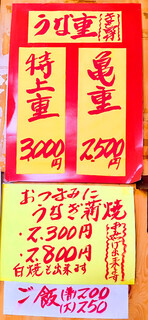 うな重
亀重
2,500円
特上重
3,000円
おつまみに
うなぎ蒲焼
・2,300円
・2,800円
白焼も出来ます
ご飯(普)200
(大)250